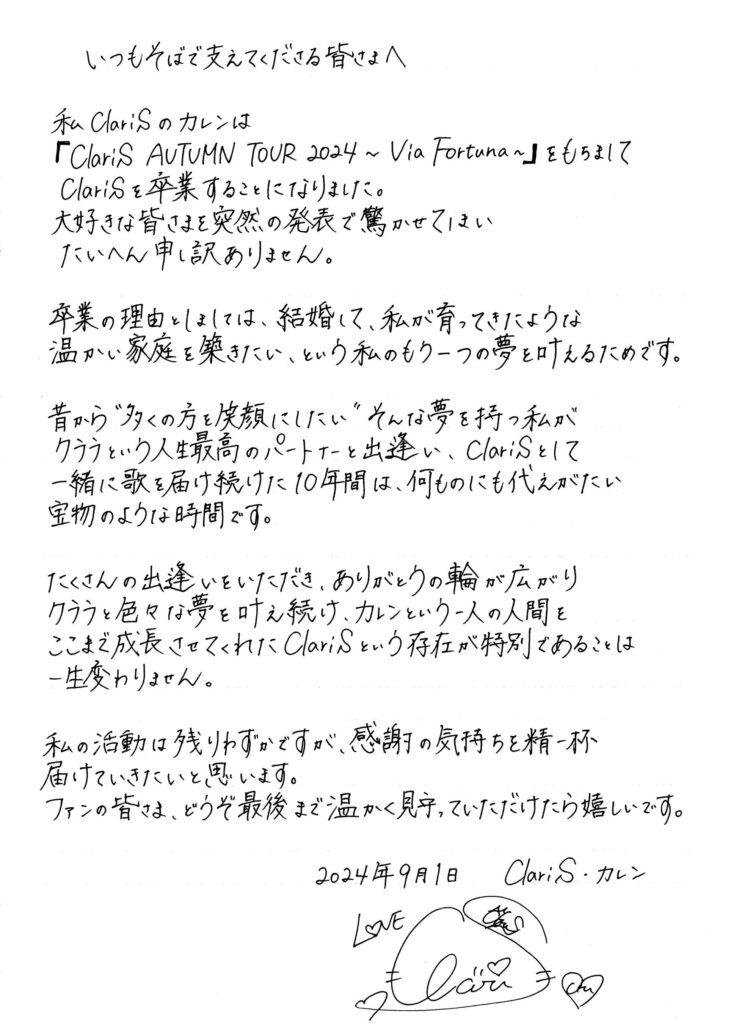 いつもそばで支えてくださる皆さまへ
私 ClariS の カレンは
「ClariS AUTUMN TOUR 2024 ~ Via Fortuna ~」をもちまして
ClariS を 卒業することになりました。
大好きな皆さまを突然の発表で驚かせてしまい
たいへん申し訳ありません。
卒業の理由としましては、結婚して、私が育ってきたような
温かい家庭を築きたい、という私のもう一つの夢を叶えるためです。
昔から“多くの方を笑顔にしたい”そんな夢を持つ私が
クララという人生最高のパートナーと出逢い、ClariSとして
一緒に歌を届け続けた10年間は、何ものにも代えがたい
宝物のような時間です。
たくさんの出逢いをいただき、ありがとうの輪が広がり
クララと色々な夢を叶え続け、カレンという一人の人間を
ここまで成長させてくれたClariSという存在が特別であることは
一生変わりません。
私の活動は残りわずかですが、感謝の気持ちを精一杯
届けていきたいと思います。
ファンの皆さま、どうぞ最後まで温かく見守っていただけたら嬉しいです。
2024年9月1日 ClariS・カレン
LOVE